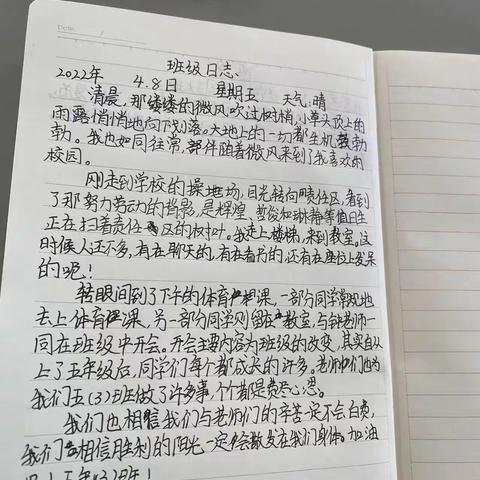 Date
班级日志
2022年 4.8日 星期五 天气:晴
清晨,那缕缕的微风吹过树梢,小草头顶上的
雨露悄悄地向下划落。大地上的一切都生机勃勃
勃。我也如同往常,部伴随着微风来到了我喜欢的
校园。
刚走到学校的操场,目光转向责任区,看到
了那努力劳动的背影,是辉煌、哲俊和琳静等值日生
正在扫着责任区的树叶。我走上楼梯,来到教室。这
时候人还不多,有在聊天的,有在看书的,还有在座位上发呆
的呢!
转眼间到了下午的体育课,一部分同学常规地
去上体育课,另一部分同学则留在教室,与钟老师一
同在班级中开会。开会主要内容为班级的改变,其实自从
上了五年级后,同学们每个都成长的许多。老师们也为
我们五(3)班做了许多事,个个都是费尽心思。
我们也相信我们与老师们的辛苦一定不会白费,
我们相信胜利的阳光一定会散发在我们身体。加油
吧!五年(3)班!